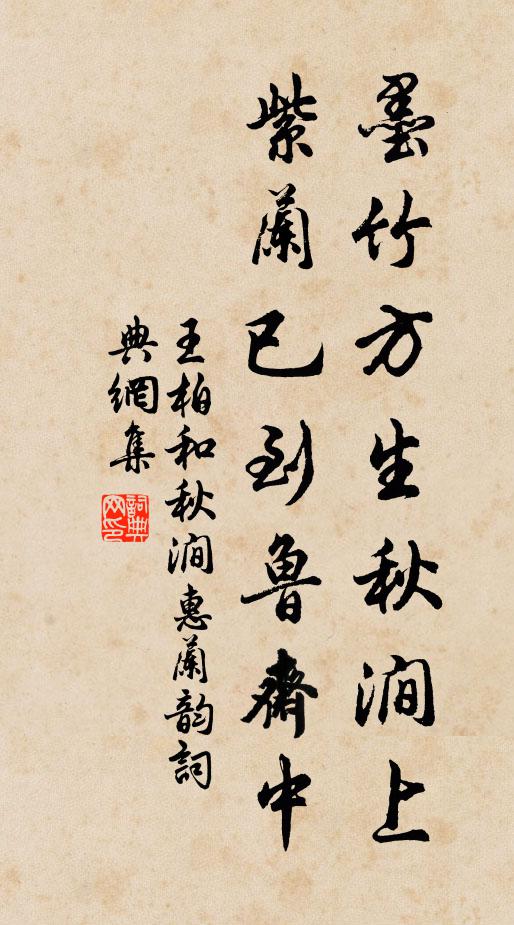 墨竹方生秋澗上
紫蘭已到魯齋中
王柏和秋澗惠蘭韵詞
典網集
詞典
网印